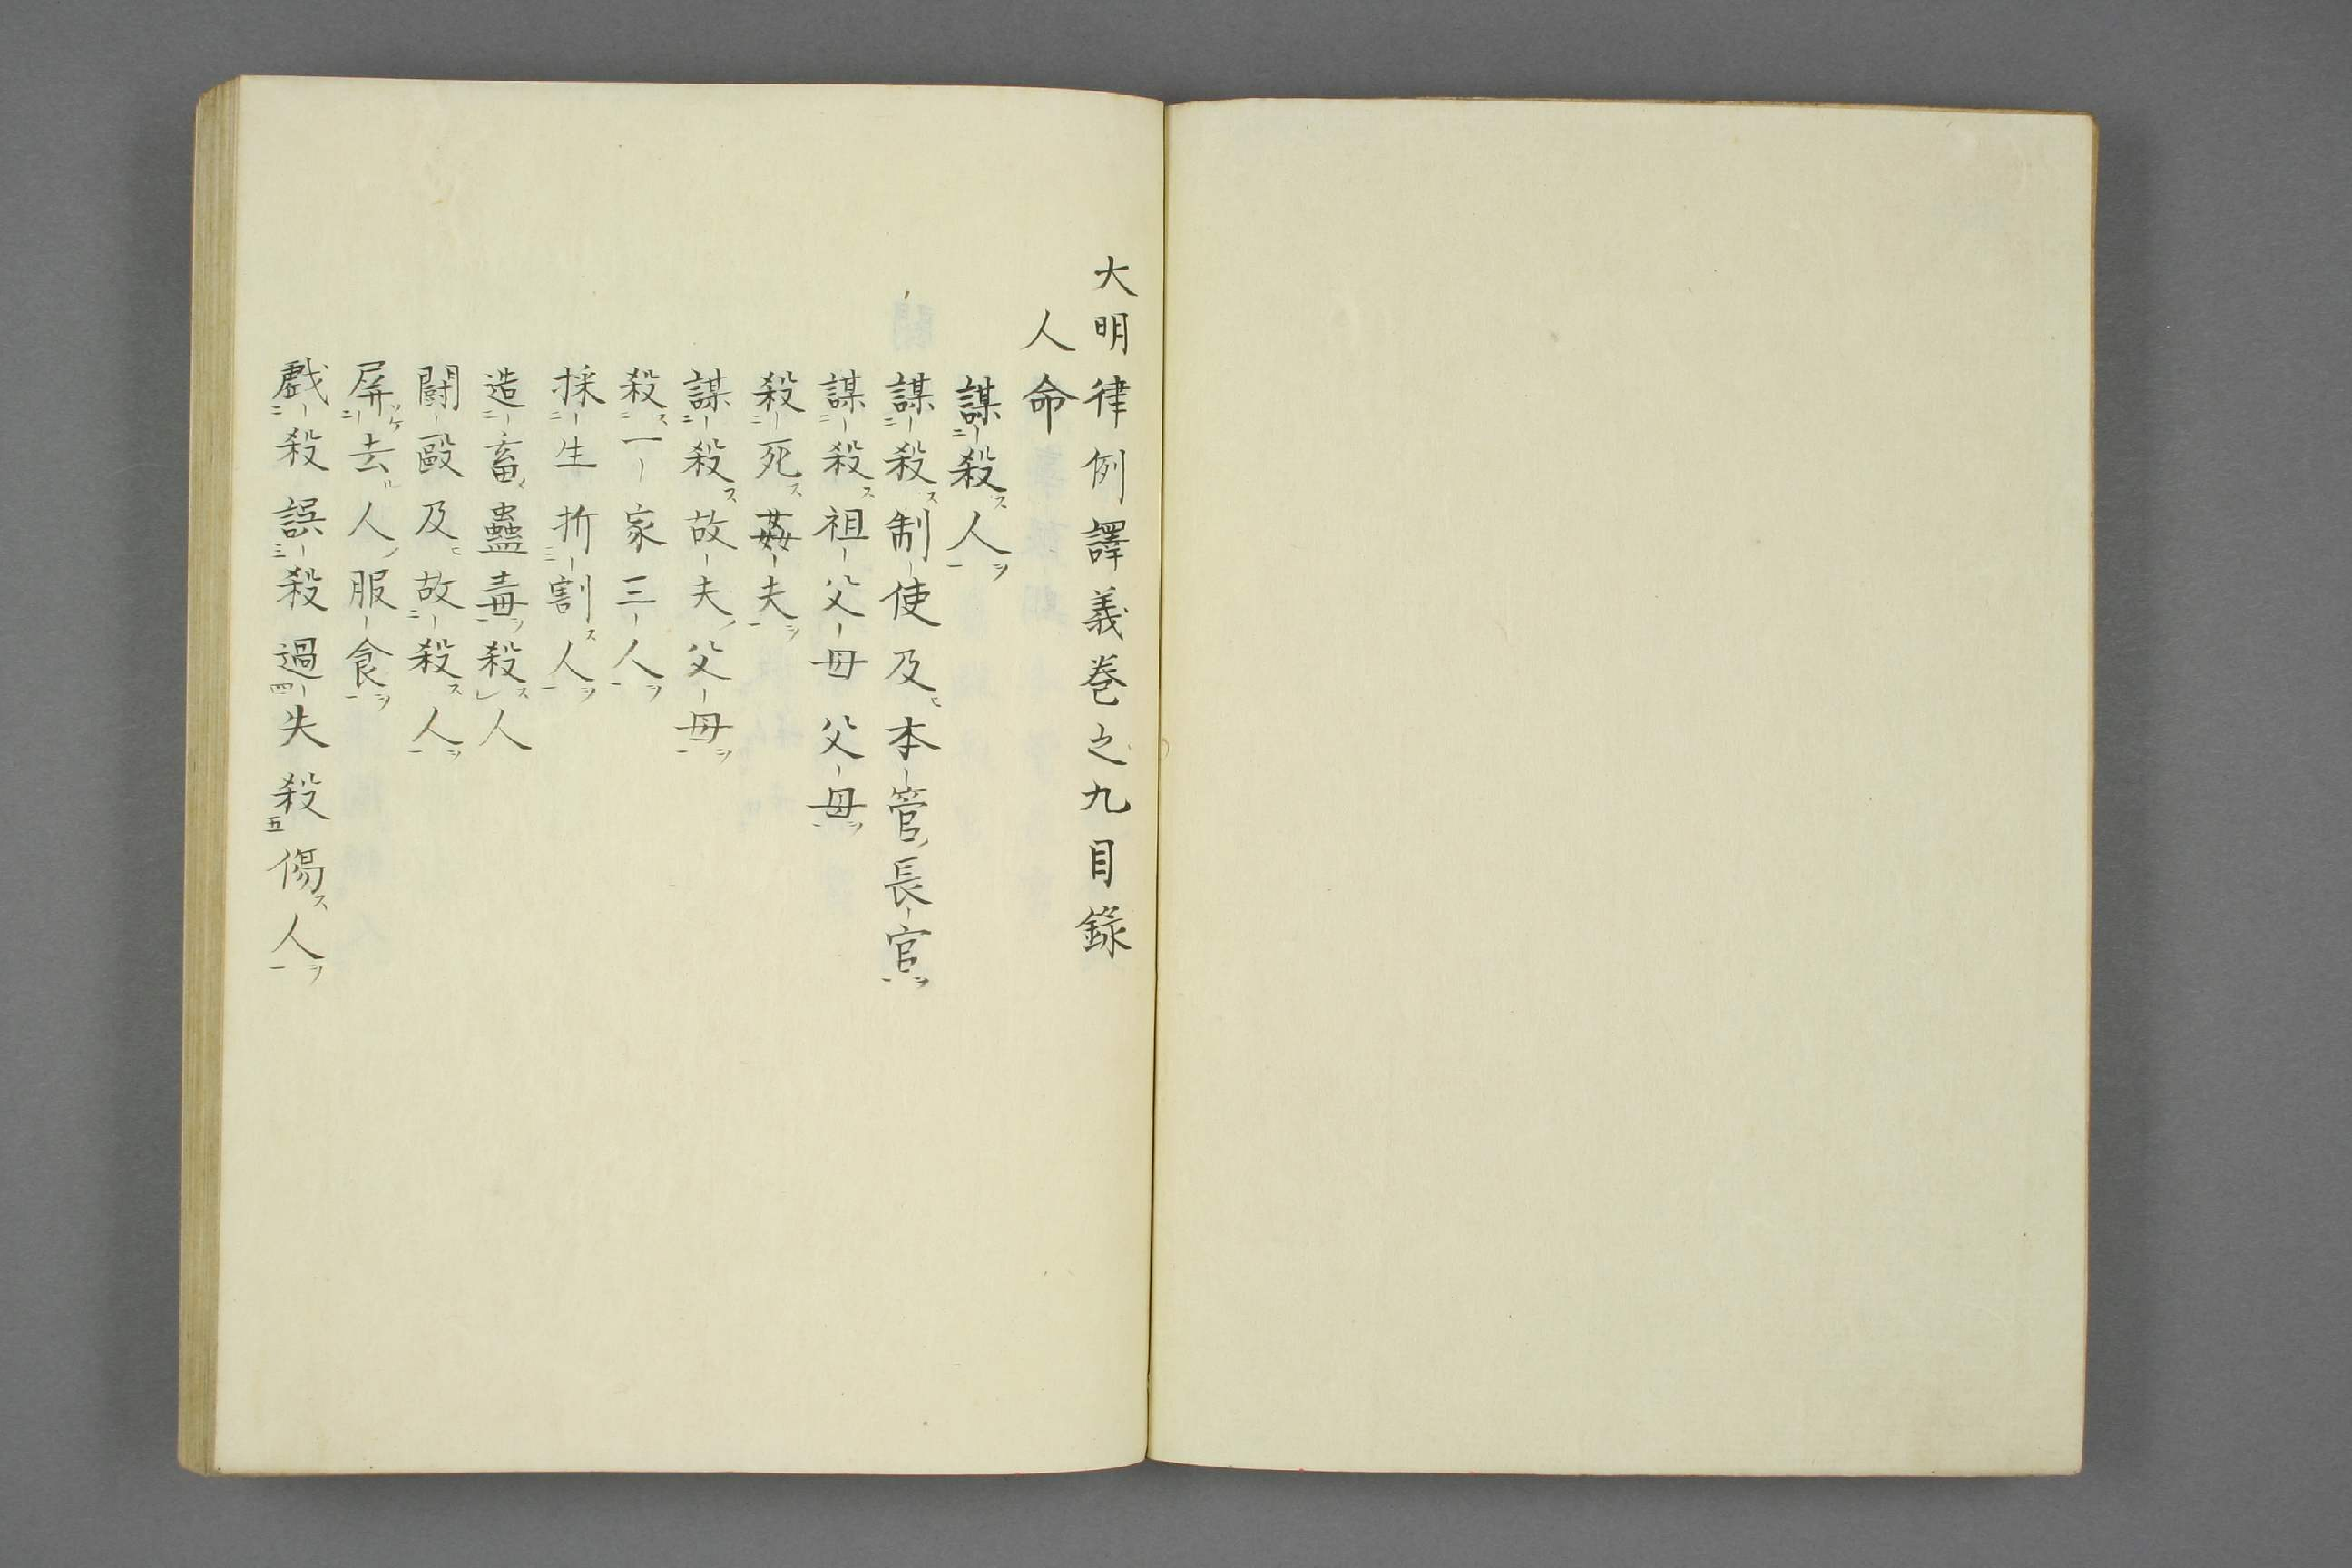 大明律例譯義巻之九目錄
人命
謀殺人
謀殺制使及本管長官
謀殺祖父母父母
殺死姦夫
謀殺故夫父母
殺一家三人
採生折割人
造畜蠱毒殺人
鬪毆及故殺人
屏去人服食
戲殺誤殺過失殺傷人